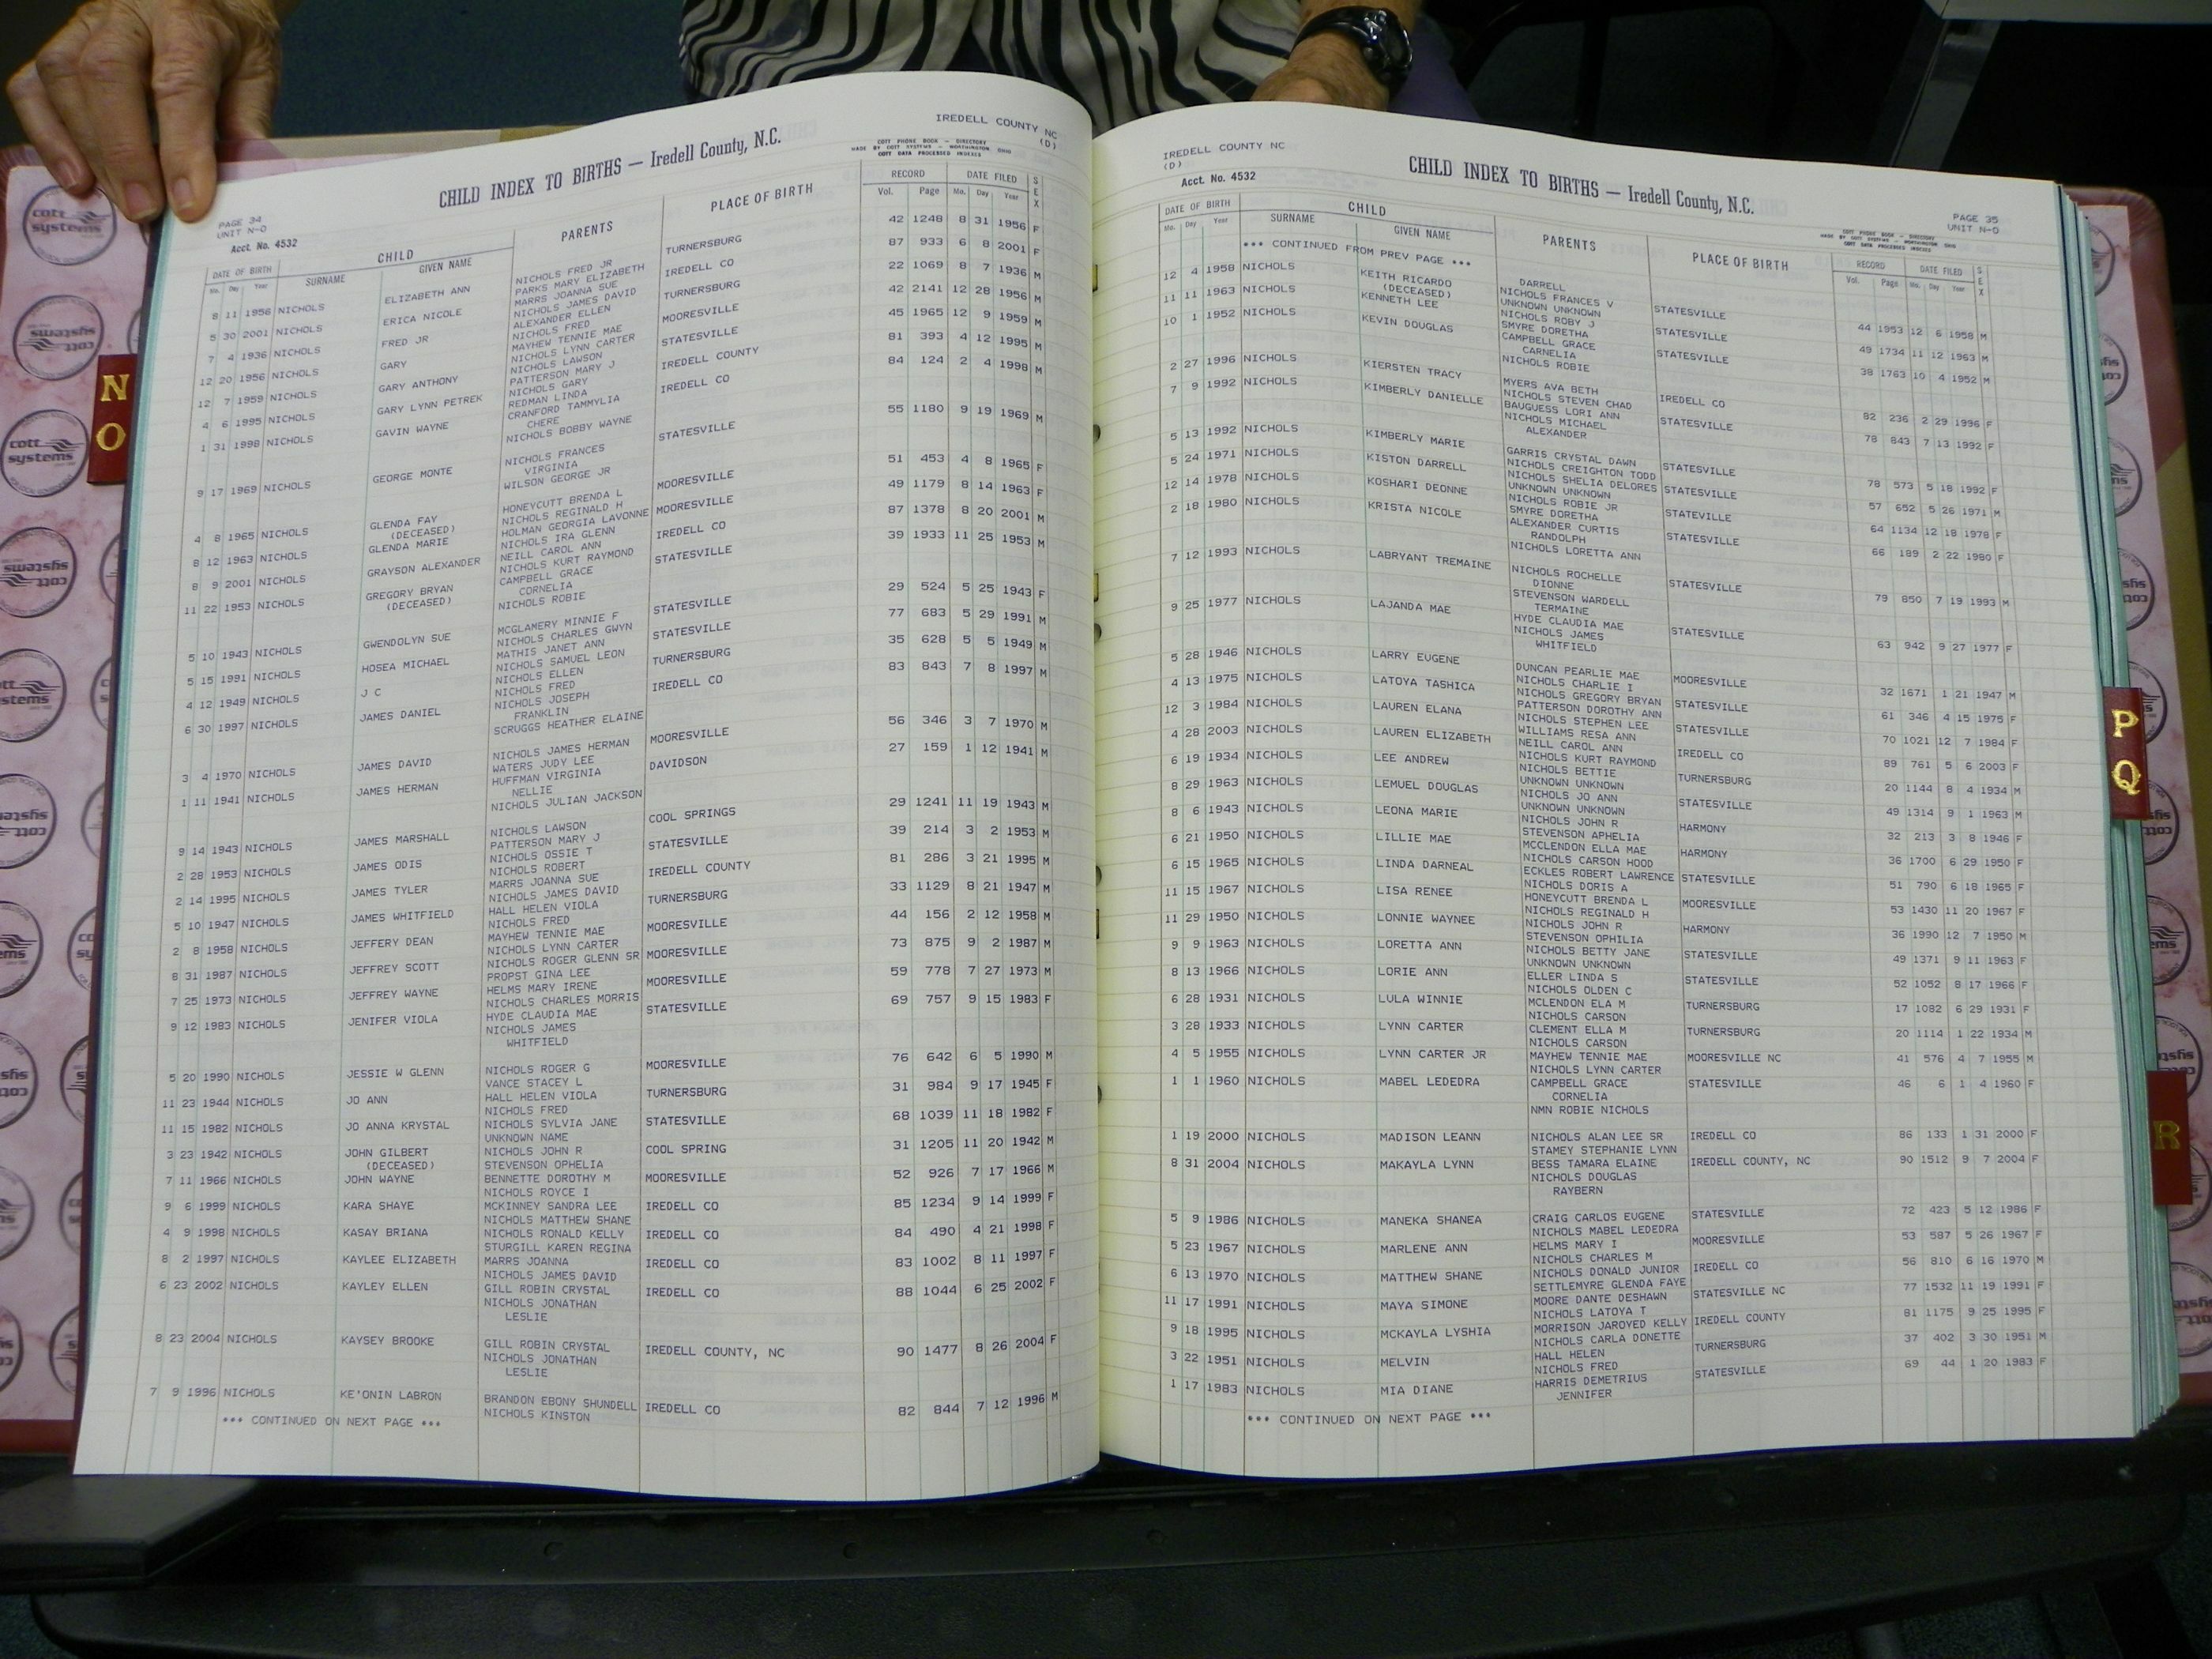 IREDELL COUNTY NC
(D)
CHILD INDEX TO BIRTHS — Iredell County, N.C.
COTT PHONE BOOK — DIRECTORY
MADE BY COTT SYSTEMS — WORTHINGTON OHIO
COTT DATA PROCESSED INDEXES
PAGE 34
UNIT N-O
Acct. No. 4532
DATE OF BIRTH CHILD PARENTS PLACE OF BIRTH RECORD DATE FILED SEX
Mo. Day Year SURNAME GIVEN NAME Vol. Page Mo. Day Year
8 11 1956 NICHOLS ELIZABETH ANN NICHOLS FRED JR TURNERSBURG 42 1248 8 31 1956 F
PARKS MARY ELIZABETH
5 30 2001 NICHOLS ERICA NICOLE MARRS JOANNA SUE IREDELL CO 87 933 6 8 2001 F
NICHOLS JAMES DAVID
7 4 1936 NICHOLS FRED JR ALEXANDER ELLEN TURNERSBURG 22 1069 8 7 1936 M
NICHOLS FRED
12 20 1956 NICHOLS GARY MAYHEW TENNIE MAE MOORESVILLE 42 2141 12 28 1956 M
NICHOLS LYNN CARTER
12 7 1959 NICHOLS GARY ANTHONY NICHOLS LAWSON STATESVILLE 45 1965 12 9 1959 M
PATTERSON MARY J
4 6 1995 NICHOLS GARY LYNN PETREK NICHOLS GARY IREDELL COUNTY 81 393 4 12 1995 M
REDMAN LINDA
1 31 1998 NICHOLS GAVIN WAYNE CRANFORD TAMMYLIA IREDELL CO 84 124 2 4 1998 M
CHERE
NICHOLS BOBBY WAYNE
9 17 1969 NICHOLS GEORGE MONTE NICHOLS FRANCES STATESVILLE 55 1180 9 19 1969 M
VIRGINIA
WILSON GEORGE JR
4 8 1965 NICHOLS GLENDA FAY HONEYCUTT BRENDA L MOORESVILLE 51 453 4 8 1965 F
(DECEASED) NICHOLS REGINALD H
8 12 1963 NICHOLS GLENDA MARIE HOLMAN GEORGIA LAVONNE MOORESVILLE 49 1179 8 14 1963 F
NICHOLS IRA GLENN
8 9 2001 NICHOLS GRAYSON ALEXANDER NEILL CAROL ANN IREDELL CO 87 1378 8 20 2001 M
NICHOLS KURT RAYMOND
11 22 1953 NICHOLS GREGORY BRYAN CAMPBELL GRACE STATESVILLE 39 1933 11 25 1953 M
(DECEASED) CORNELIA
NICHOLS ROBIE
5 10 1943 NICHOLS GWENDOLYN SUE MCGLAMERY MINNIE F STATESVILLE 29 524 5 25 1943 F
NICHOLS CHARLES GWYN
5 15 1991 NICHOLS HOSEA MICHAEL MATHIS JANET ANN STATESVILLE 77 683 5 29 1991 M
NICHOLS SAMUEL LEON
4 12 1949 NICHOLS J C NICHOLS ELLEN TURNERSBURG 35 628 5 5 1949 M
NICHOLS FRED
6 30 1997 NICHOLS JAMES DANIEL NICHOLS JOSEPH IREDELL CO 83 843 7 8 1997 M
FRANKLIN
SCRUGGS HEATHER ELAINE
3 4 1970 NICHOLS JAMES DAVID NICHOLS JAMES HERMAN MOORESVILLE 56 346 3 7 1970 M
WATERS JUDY LEE
1 11 1941 NICHOLS JAMES HERMAN HUFFMAN VIRGINIA DAVIDSON 27 159 1 12 1941 M
NELLIE
NICHOLS JULIAN JACKSON
9 14 1943 NICHOLS JAMES MARSHALL NICHOLS LAWSON COOL SPRINGS 29 1241 11 19 1943 M
PATTERSON MARY J
2 28 1953 NICHOLS JAMES ODIS NICHOLS OSSIE T STATESVILLE 39 214 3 2 1953 M
NICHOLS ROBERT
2 14 1995 NICHOLS JAMES TYLER MARRS JOANNA SUE IREDELL COUNTY 81 286 3 21 1995 M
NICHOLS JAMES DAVID
5 10 1947 NICHOLS JAMES WHITFIELD HALL HELEN VIOLA TURNERSBURG 33 1129 8 21 1947 M
NICHOLS FRED
2 8 1958 NICHOLS JEFFERY DEAN MAYHEW TENNIE MAE MOORESVILLE 44 156 2 12 1958 M
NICHOLS LYNN CARTER
8 31 1987 NICHOLS JEFFREY SCOTT NICHOLS ROGER GLENN SR MOORESVILLE 73 875 9 2 1987 M
PROPST GINA LEE
7 25 1973 NICHOLS JEFFREY WAYNE HELMS MARY IRENE MOORESVILLE 59 778 7 27 1973 M
NICHOLS CHARLES MORRIS
9 12 1983 NICHOLS JENIFER VIOLA HYDE CLAUDIA MAE STATESVILLE 69 757 9 15 1983 F
NICHOLS JAMES
WHITFIELD
5 20 1990 NICHOLS JESSIE W GLENN NICHOLS ROGER G MOORESVILLE 76 642 6 5 1990 M
VANCE STACEY L
11 23 1944 NICHOLS JO ANN HALL HELEN VIOLA TURNERSBURG 31 984 9 17 1945 F
NICHOLS FRED
11 15 1982 NICHOLS JO ANNA KRYSTAL NICHOLS SYLVIA JANE STATESVILLE 68 1039 11 18 1982 F
UNKNOWN NAME
3 23 1942 NICHOLS JOHN GILBERT NICHOLS JOHN R COOL SPRING 31 1205 11 20 1942 M
(DECEASED) STEVENSON OPHELIA
7 11 1966 NICHOLS JOHN WAYNE BENNETTE DOROTHY M MOORESVILLE 52 926 7 17 1966 M
NICHOLS ROYCE I
9 6 1999 NICHOLS KARA SHAYE MCKINNEY SANDRA LEE IREDELL CO 85 1234 9 14 1999 F
NICHOLS MATTHEW SHANE
4 9 1998 NICHOLS KASAY BRIANA NICHOLS RONALD KELLY IREDELL CO 84 490 4 21 1998 F
STURGILL KAREN REGINA
8 2 1997 NICHOLS KAYLEE ELIZABETH MARRS JOANNA IREDELL CO 83 1002 8 11 1997 F
NICHOLS JAMES DAVID
6 23 2002 NICHOLS KAYLEY ELLEN GILL ROBIN CRYSTAL IREDELL CO 88 1044 6 25 2002 F
NICHOLS JONATHAN
LESLIE
8 23 2004 NICHOLS KAYSEY BROOKE GILL ROBIN CRYSTAL IREDELL COUNTY, NC 90 1477 8 26 2004 F
NICHOLS JONATHAN
LESLIE
7 9 1996 NICHOLS KE'ONIN LABRON BRANDON EBONY SHUNDELL IREDELL CO 82 844 7 12 1996 M
NICHOLS KINSTON
*** CONTINUED ON NEXT PAGE ***
IREDELL COUNTY NC
(D)
Acct. No. 4532
CHILD INDEX TO BIRTHS — Iredell County, N.C.
PAGE 35
UNIT N-O
COTT PHONE BOOK — DIRECTORY
MADE BY COTT SYSTEMS — WORTHINGTON OHIO
COTT DATA PROCESSED INDEXES
DATE OF BIRTH CHILD PARENTS PLACE OF BIRTH RECORD DATE FILED SEX
Mo. Day Year SURNAME GIVEN NAME Vol. Page Mo. Day Year
*** CONTINUED FROM PREV PAGE ***
DARRELL
12 4 1958 NICHOLS KEITH RICARDO NICHOLS FRANCES V STATESVILLE 44 1953 12 6 1958 M
(DECEASED) UNKNOWN UNKNOWN
11 11 1963 NICHOLS KENNETH LEE NICHOLS ROBY J STATESVILLE 49 1734 11 12 1963 M
SMYRE DORETHA
10 1 1952 NICHOLS KEVIN DOUGLAS CAMPBELL GRACE STATESVILLE 38 1763 10 4 1952 M
CARNELIA
NICHOLS ROBIE
2 27 1996 NICHOLS KIERSTEN TRACY MYERS AVA BETH IREDELL CO 82 236 2 29 1996 F
NICHOLS STEVEN CHAD
7 9 1992 NICHOLS KIMBERLY DANIELLE BAUGUESS LORI ANN STATESVILLE 78 843 7 13 1992 F
NICHOLS MICHAEL
ALEXANDER
5 13 1992 NICHOLS KIMBERLY MARIE GARRIS CRYSTAL DAWN STATESVILLE 78 573 5 18 1992 F
NICHOLS CREIGHTON TODD
5 24 1971 NICHOLS KISTON DARRELL NICHOLS SHELIA DELORES STATESVILLE 57 652 5 26 1971 M
UNKNOWN UNKNOWN
12 14 1978 NICHOLS KOSHARI DEONNE NICHOLS ROBIE JR STATESVILLE 64 1134 12 18 1978 F
SMYRE DORETHA
2 18 1980 NICHOLS KRISTA NICOLE ALEXANDER CURTIS STATESVILLE 66 189 2 22 1980 F
RANDOLPH
NICHOLS LORETTA ANN
7 12 1993 NICHOLS LABRYANT TREMAINE NICHOLS ROCHELLE STATESVILLE 79 850 7 19 1993 M
DIONNE
STEVENSON WARDELL
TERMAINE
9 25 1977 NICHOLS LAJANDA MAE HYDE CLAUDIA MAE STATESVILLE 63 942 9 27 1977 F
NICHOLS JAMES
WHITFIELD
5 28 1946 NICHOLS LARRY EUGENE DUNCAN PEARLIE MAE MOORESVILLE 32 1671 1 21 1947 M
NICHOLS CHARLIE I
4 13 1975 NICHOLS LATOYA TASHICA NICHOLS GREGORY BRYAN STATESVILLE 61 346 4 15 1975 F
PATTERSON DOROTHY ANN
12 3 1984 NICHOLS LAUREN ELANA NICHOLS STEPHEN LEE STATESVILLE 70 1021 12 7 1984 F
WILLIAMS RESA ANN
4 28 2003 NICHOLS LAUREN ELIZABETH NEILL CAROL ANN IREDELL CO 89 761 5 6 2003 F
NICHOLS KURT RAYMOND
6 19 1934 NICHOLS LEE ANDREW NICHOLS BETTIE TURNERSBURG 20 1144 8 4 1934 M
UNKNOWN UNKNOWN
8 29 1963 NICHOLS LEMUEL DOUGLAS NICHOLS JO ANN STATESVILLE 49 1314 9 1 1963 M
UNKNOWN UNKNOWN
8 6 1943 NICHOLS LEONA MARIE NICHOLS JOHN R HARMONY 32 213 3 8 1946 F
STEVENSON APHELIA
6 21 1950 NICHOLS LILLIE MAE MCCLENDON ELLA MAE HARMONY 36 1700 6 29 1950 F
NICHOLS CARSON HOOD
6 15 1965 NICHOLS LINDA DARNEAL ECKLES ROBERT LAWRENCE STATESVILLE 51 790 6 18 1965 F
NICHOLS DORIS A
11 15 1967 NICHOLS LISA RENEE HONEYCUTT BRENDA L MOORESVILLE 53 1430 11 20 1967 F
NICHOLS REGINALD H
11 29 1950 NICHOLS LONNIE WAYNEE NICHOLS JOHN R HARMONY 36 1990 12 7 1950 M
STEVENSON OPHILIA
9 9 1963 NICHOLS LORETTA ANN NICHOLS BETTY JANE STATESVILLE 49 1371 9 11 1963 F
UNKNOWN UNKNOWN
8 13 1966 NICHOLS LORIE ANN ELLER LINDA S STATESVILLE 52 1052 8 17 1966 F
NICHOLS OLDEN C
6 28 1931 NICHOLS LULA WINNIE MCLENDON ELA M TURNERSBURG 17 1082 6 29 1931 F
NICHOLS CARSON
3 28 1933 NICHOLS LYNN CARTER CLEMENT ELLA M TURNERSBURG 20 1114 1 22 1934 M
NICHOLS CARSON
4 5 1955 NICHOLS LYNN CARTER JR MAYHEW TENNIE MAE MOORESVILLE NC 41 576 4 7 1955 M
NICHOLS LYNN CARTER
1 1 1960 NICHOLS MABEL LEDEDRA CAMPBELL GRACE STATESVILLE 46 6 1 4 1960 F
CORNELIA
NMN ROBIE NICHOLS
1 19 2000 NICHOLS MADISON LEANN NICHOLS ALAN LEE SR IREDELL CO 86 133 1 31 2000 F
STAMEY STEPHANIE LYNN
8 31 2004 NICHOLS MAKAYLA LYNN BESS TAMARA ELAINE IREDELL COUNTY, NC 90 1512 9 7 2004 F
NICHOLS DOUGLAS
RAYBERN
5 9 1986 NICHOLS MANEKA SHANEA CRAIG CARLOS EUGENE STATESVILLE 72 423 5 12 1986 F
NICHOLS MABEL LEDEDRA
5 23 1967 NICHOLS MARLENE ANN HELMS MARY I MOORESVILLE 53 587 5 26 1967 F
NICHOLS CHARLES M
6 13 1970 NICHOLS MATTHEW SHANE NICHOLS DONALD JUNIOR IREDELL CO 56 810 6 16 1970 M
SETTLEMYRE GLENDA FAYE
11 17 1991 NICHOLS MAYA SIMONE MOORE DANTE DESHAWN STATESVILLE NC 77 1532 11 19 1991 F
NICHOLS LATOYA T
9 18 1995 NICHOLS MCKAYLA LYSHIA MORRISON JAROYED KELLY IREDELL COUNTY 81 1175 9 25 1995 F
NICHOLS CARLA DONETTE
3 22 1951 NICHOLS MELVIN HALL HELEN TURNERSBURG 37 402 3 30 1951 M
NICHOLS FRED
1 17 1983 NICHOLS MIA DIANE HARRIS DEMETRIUS STATESVILLE 69 44 1 20 1983 F
JENNIFER
*** CONTINUED ON NEXT PAGE ***
N
O
P
Q
R
cott
systems